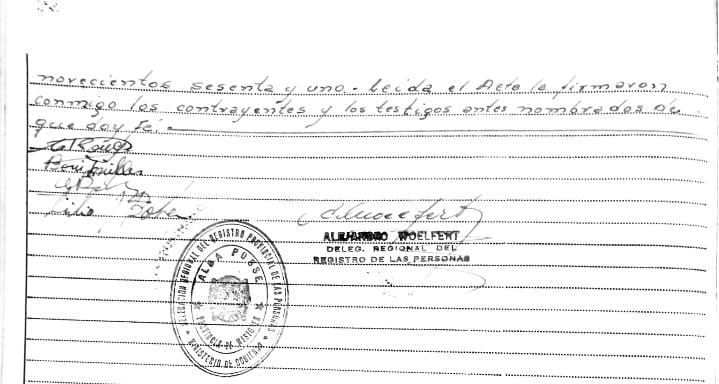 novecientos sesenta y uno - Leida el Acta la firmaron
conmigo los contrayentes y los testigos antes nombrados de
que doy fé.
ALEJANDRO WOELFERT
DELEG. REGIONAL DEL
REGISTRO DE LAS PERSONAS
DELEGACION REGIONAL DEL REGISTRO PROVINCIAL DE LAS PERSONAS
ALBA POSSE
PROVINCIA DE MISIONES
MINISTERIO DE GOBIERNO